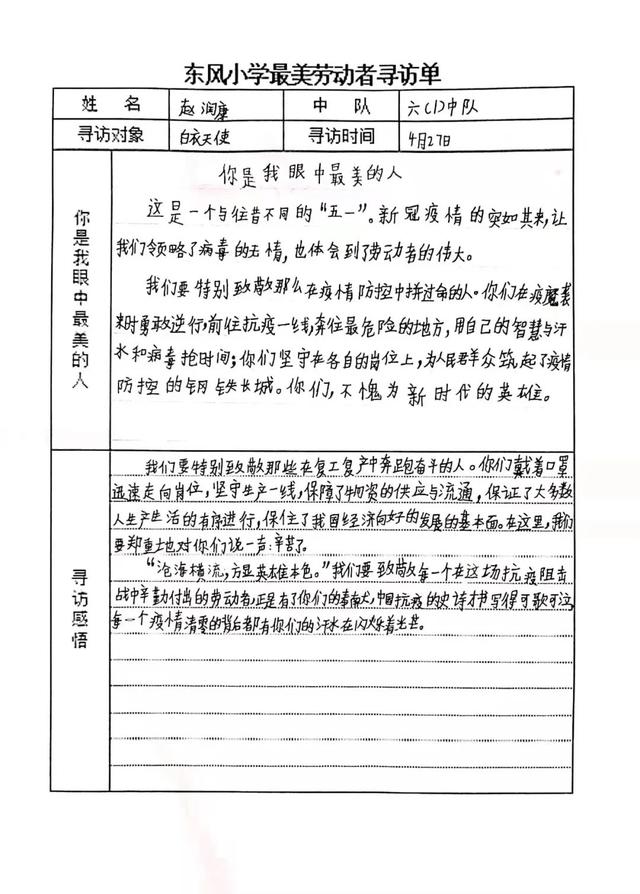 东风小学最美劳动者寻访单
姓 名 赵润康 中 队 六(1)中队
寻访对象 白衣天使 寻访时间 4月27日
你是我眼中最美的人
你是我眼中最美的人
这是一个与往昔不同的“五一”。新冠疫情的突如其来,让
我们领略了病毒的无情,也体会到了劳动者的伟大。
我们要特别致敬那么在疫情防控中拼过命的人。你们在疫魔袭
来时勇敢逆行,前往抗疫一线,奔位最危险的地方,用自己的智慧与汗
水和病毒抢时间;你们坚守在各自的岗位上,为人民群众筑起了疫情
防控的钢铁长城。你们,不愧为新时代的英雄。
寻访感悟
我们要特别致敬那些在复工复产中奔跑奋斗的人。你们戴着口罩
迅速走向岗位,坚守生产一线,保障了物资的供应与流通,保证了大多数
人生产生活的有序进行,保住了我国经济向好的发展的基本面。在这里,我们
要郑重地对你们说一声:辛苦了。
“沧海横流,方显英雄本色。”我们要致敬每一个在这场抗疫阻击
战中辛勤付出的劳动者,正是有了你们的奉献,中国抗疫的史诗才书写得可歌可泣,
每一个疫情清零的背后都有你们的汗水在闪烁着光芒。